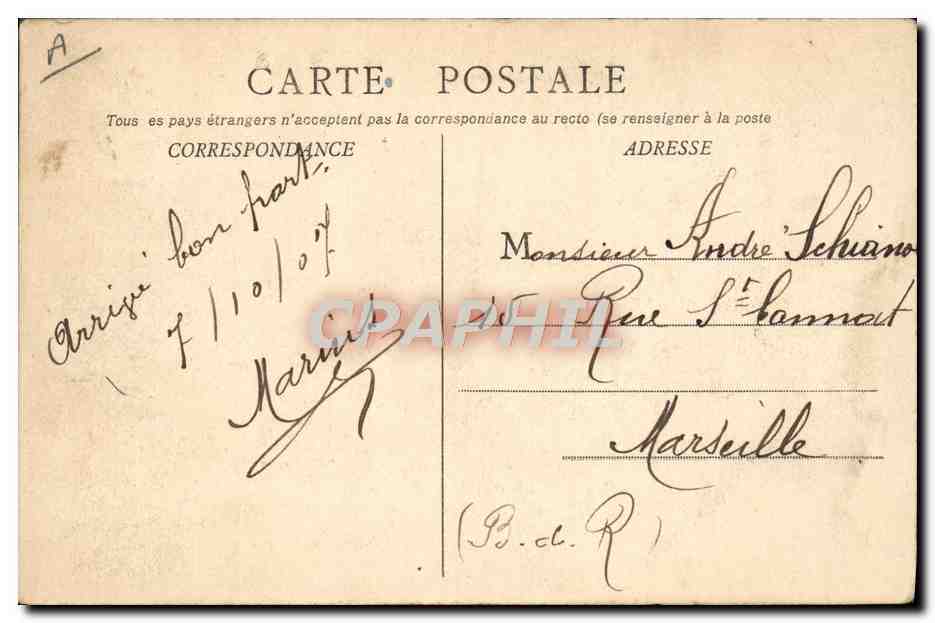 A
CARTE POSTALE
Tous es pays étrangers n'acceptent pas la correspondance au recto (se renseigner à la poste
CORRESPONDANCE
Arrivé bon port
7/10/07
Marius
ADRESSE
Monsieur André Schiano
15 Rue St Cannat
Marseille
(B. d. R)
CPAPHIL